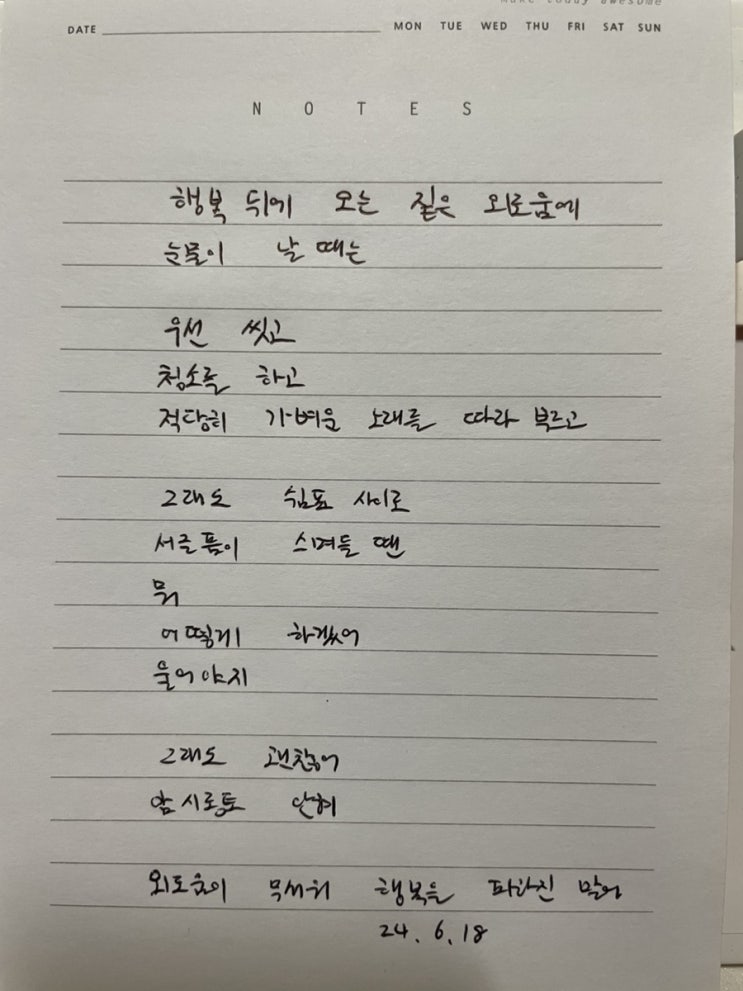 make today awesome
DATE MON TUE WED THU FRI SAT SUN
NOTES
행복 뒤에 오는 짙은 외로움에
눈물이 날 때는
우선 씻고
청소를 하고
적당히 가벼운 노래를 따라 부르고
그래도 쉼표 사이로
서글픔이 스며들 땐
뭐
어떻게 하겠어
울어야지
그래도 괜찮아
암시롱토 안혀
외로움이 무서워 행복을 피하진 말어
24. 6. 18